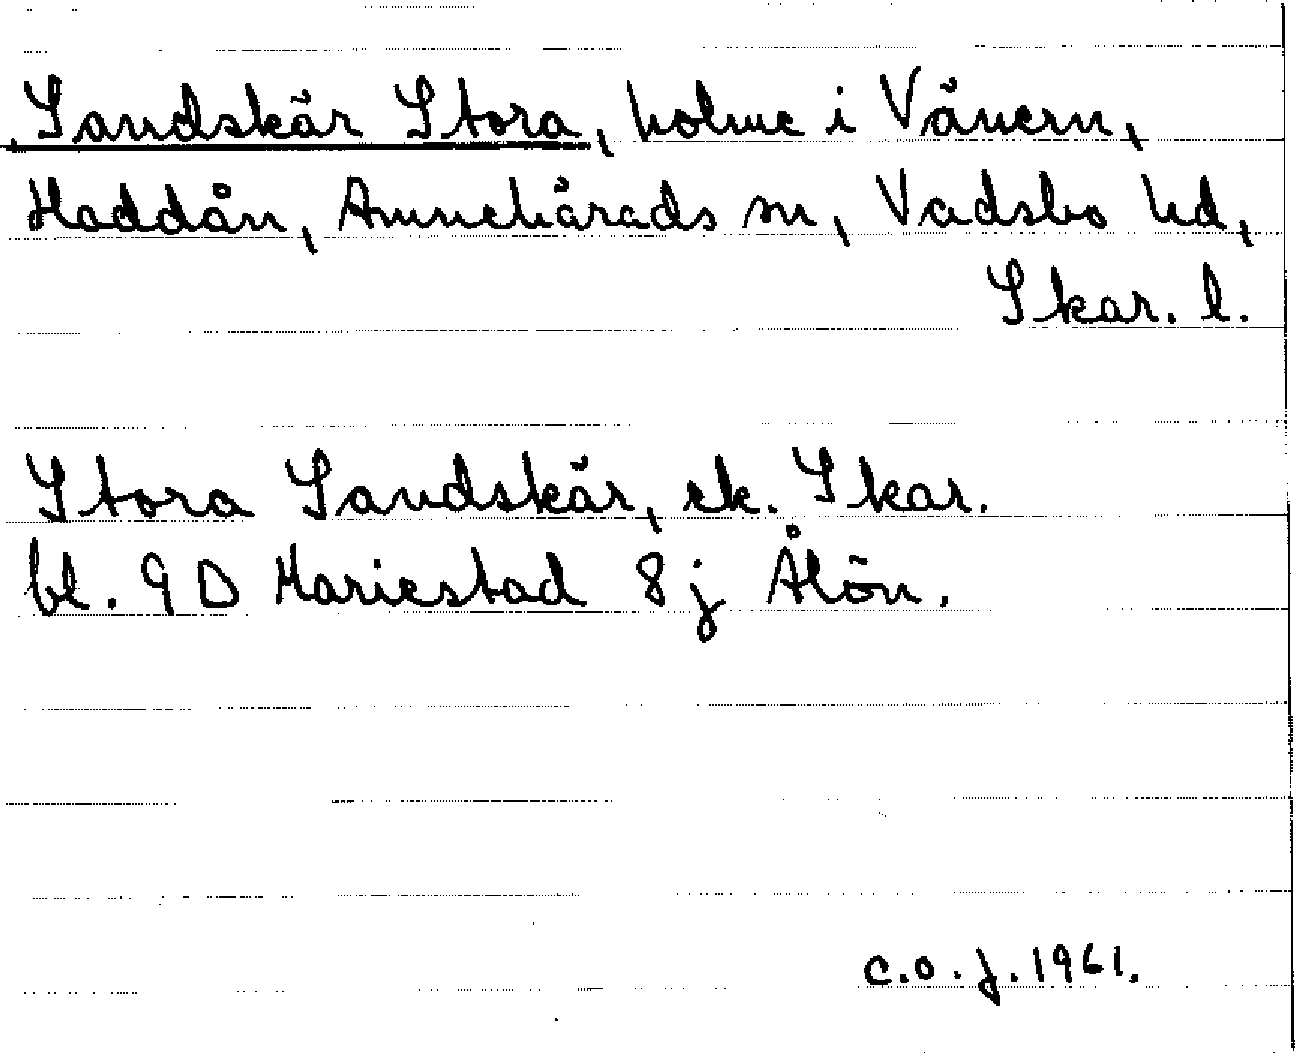 Sandskär Stora, holme i Vänern,
Haddån, Amnehärads sn, Vadsbo hd,
Skar. l.
Stora Sandskär, ek. Skar.
bl. 9 D Mariestad 8 j Ålön.
C.O.J. 1961.